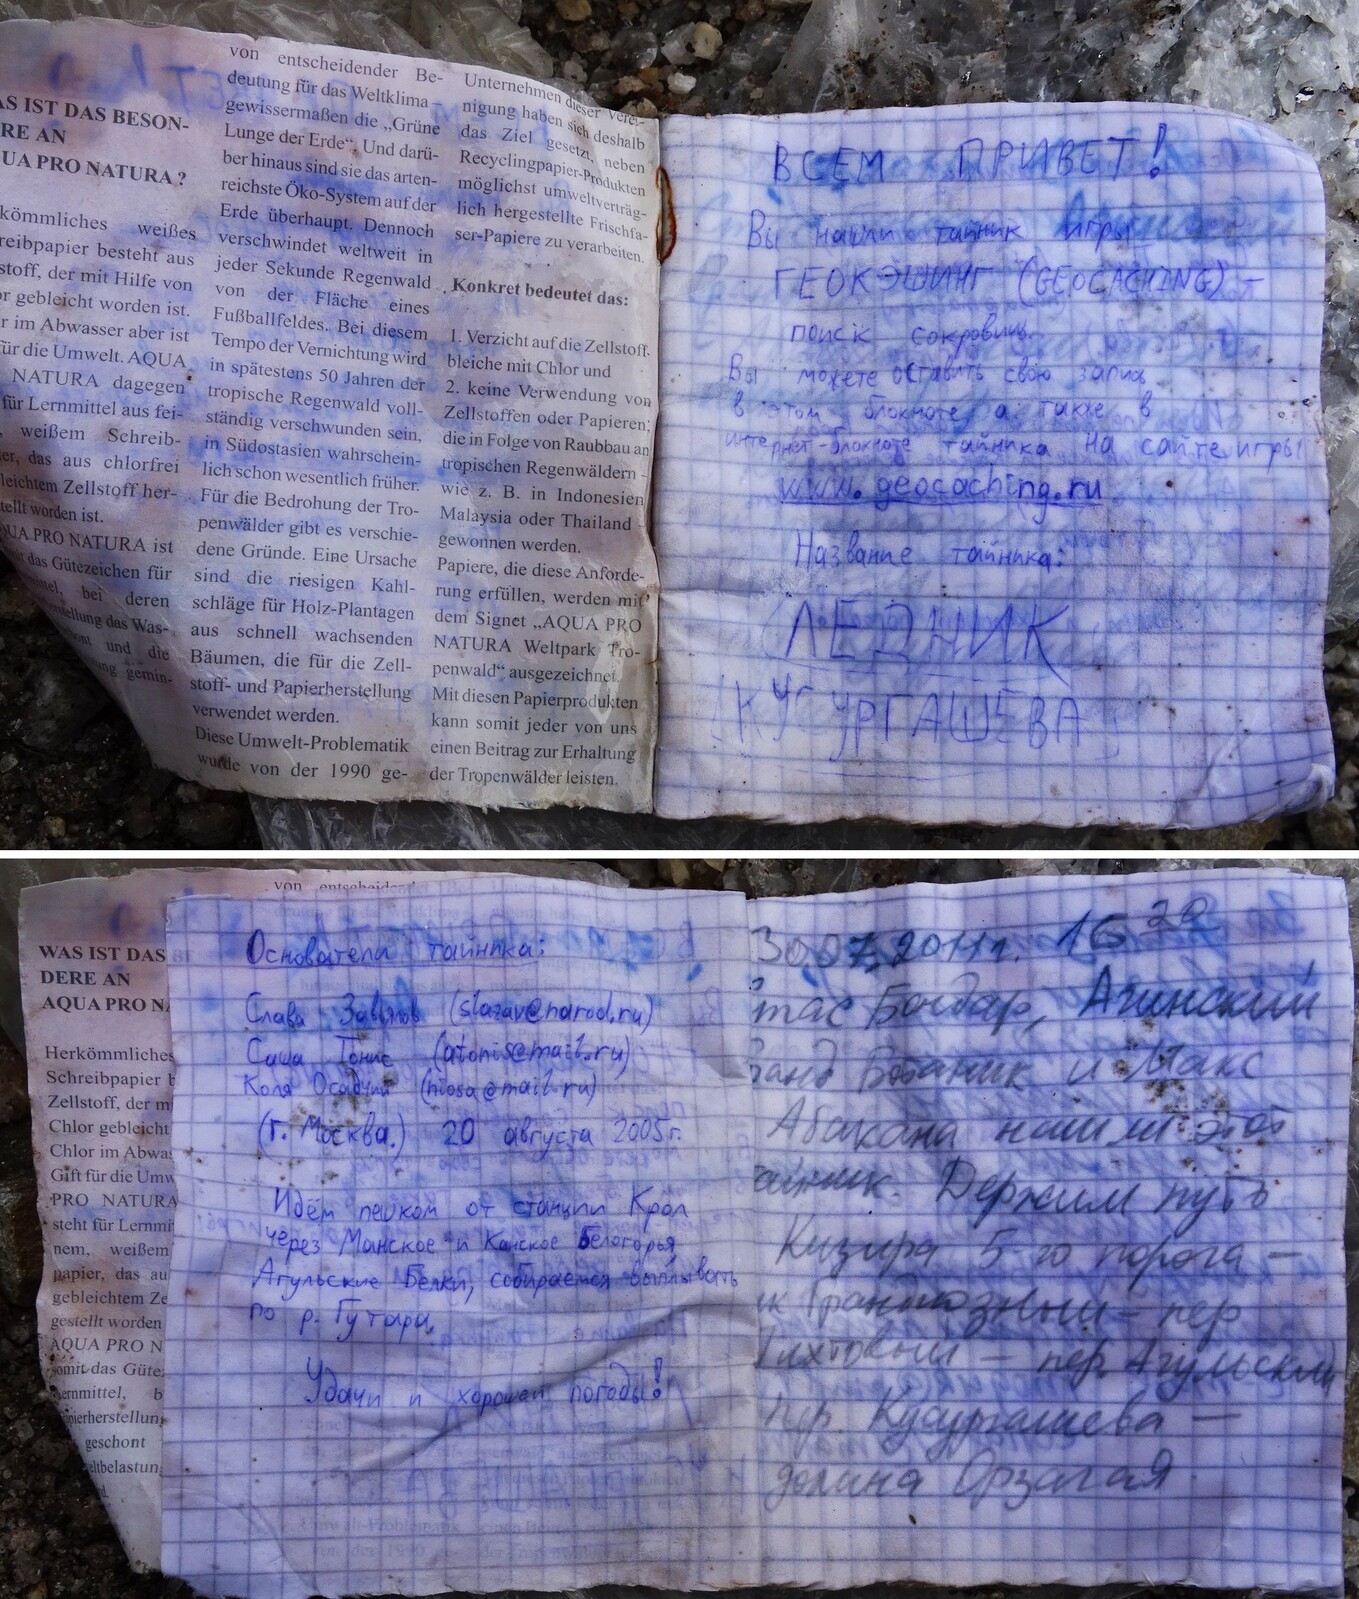 AS IST DAS BESON-
RE AN
QUA PRO NATURA?
kömmliches weißes
reibpapier besteht aus
stoff, der mit Hilfe von
or gebleicht worden ist.
r im Abwasser aber ist
für die Umwelt. AQUA
NATURA dagegen
für Lernmittel aus fei-
, weißem Schreib-
er, das aus chlorfrei
leichtem Zellstoff her-
tellt worden ist.
QUA PRO NATURA ist
t das Gütezeichen für
mel, bei deren
stellung das Was-
ont und die
ung gemin-
von entscheidender Be-
deutung für das Weltklima –
gewissermaßen die „Grüne
Lunge der Erde“. Und darü-
ber hinaus sind sie das arten-
reichste Öko-System auf der
Erde überhaupt. Dennoch
verschwindet weltweit in
jeder Sekunde Regenwald
von der Fläche eines
Fußballfeldes. Bei diesem
Tempo der Vernichtung wird
in spätestens 50 Jahren der
tropische Regenwald voll-
ständig verschwunden sein,
in Südostasien wahrschein-
lich schon wesentlich früher.
Für die Bedrohung der Tro-
penwälder gibt es verschie-
dene Gründe. Eine Ursache
sind die riesigen Kahl-
schläge für Holz-Plantagen
aus schnell wachsenden
Bäumen, die für die Zell-
stoff- und Papierherstellung
verwendet werden.
Diese Umwelt-Problematik
wurde von der 1990 ge-
Unternehmen dieser Verei-
nigung haben sich deshalb
das Ziel gesetzt, neben
Recyclingpapier-Produkten
möglichst umweltverträg-
lich hergestellte Frischfa-
ser-Papiere zu verarbeiten.
Konkret bedeutet das:
1. Verzicht auf die Zellstoff-
bleiche mit Chlor und
2. keine Verwendung von
Zellstoffen oder Papieren,
die in Folge von Raubbau an
tropischen Regenwäldern -
wie z. B. in Indonesien
Malaysia oder Thailand -
gewonnen werden.
Papiere, die diese Anforde-
rung erfüllen, werden mit
dem Signet „AQUA PRO
NATURA Weltpark Tro-
penwald“ ausgezeichnet.
Mit diesen Papierprodukten
kann somit jeder von uns
einen Beitrag zur Erhaltung
der Tropenwälder leisten.
ВСЕМ ПРИВЕТ!
Вы нашли тайник игры
ГЕОКЭШИНГ (GEOCACHING) –
поиск сокровищ.
Вы можете оставить свою запись
в этом блокноте а также в
интернет-блокноте тайника на сайте игры
www.geocaching.ru
Название тайника:
ЛЕДНИК
КУСУРГАШЕВА
von entscheidender Be
WAS IST DAS
DERE AN
AQUA PRO N
Herkömmliches
Schreibpapier b
Zellstoff, der m
Chlor gebleicht
Chlor im Abwas
Gift für die Umw
PRO NATURA
steht für Lernmit
nem, weißem
papier, das au
gebleichtem Ze
gestellt worden
AQUA PRO N
somit das Güte
Lernmittel, b
apierherstellung
geschont
eltbelastun
Основатели тайника:
Слава Завьялов (slazav@narod.ru)
Саша Тонис (atonis@mail.ru)
Коля Осадчий (niosa@mail.ru)
(г. Москва.) 20 августа 2005г.
Идём пешком от станции Крол
через Манское и Канское Белогорья,
Агульские Белки, собираемся выплывать
по р. Гутара.
Удачи и хорошей погоды!
30.07.2011г. 16 20
тас Бондар, Агинский
Ботаник и Макс
Абакана нашли этот
айник. Держим путь
Кизира 5-го порога –
ик Грандиозный – пер
Пихтовый – пер. Агульский
пер. Кусургашева –
долина Орзагая